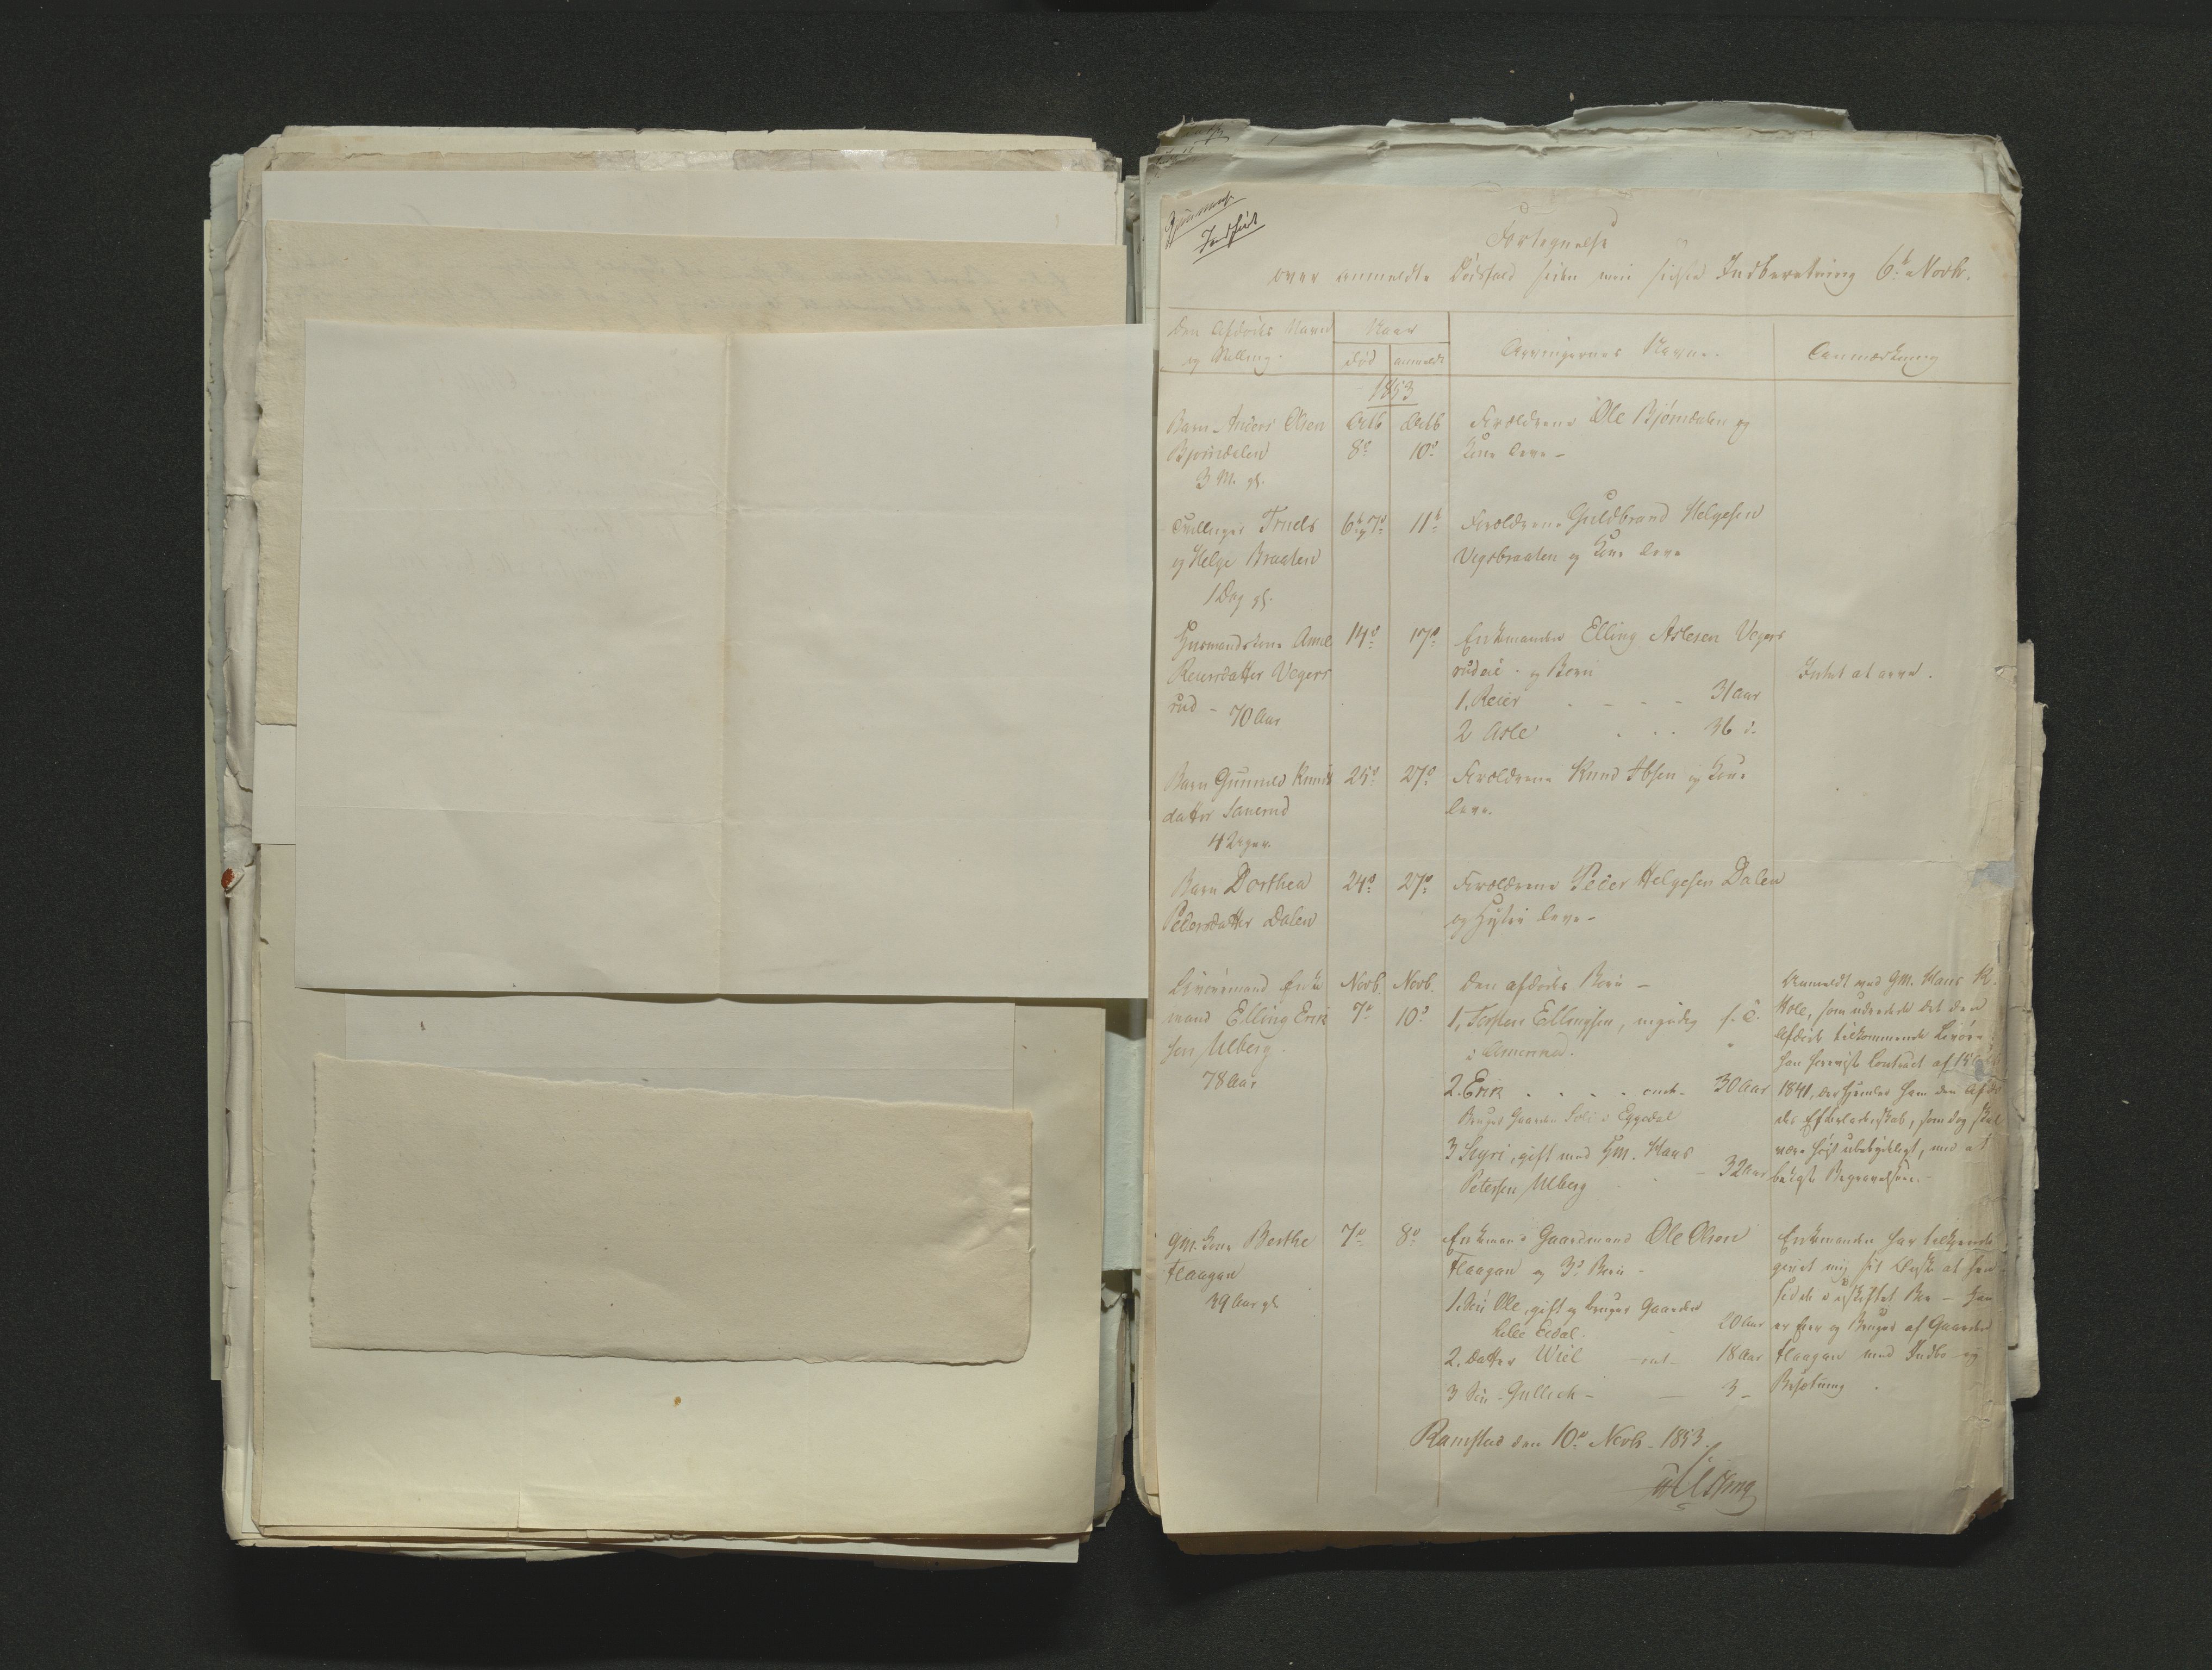 Fortegnelse
over anmeldte Dødsfald siden min sidste Indberetning 6te Novbr.
Den Afdødes Navn
og Stilling.
Naar
Død
anmeldt
Arvingernes Navne.
Anmærkning
1853
Barn Anders Olsen
Bjørndalen
3 M. gl.
Octb
8de
Octb
10de
Forældrene Ole Bjørndalen og
Kone leve –
Tvillinger Truels
og Helge Braaten
1 Dag gl.
6te og 7de
11te
Forældrene Guldbrand Helgesen
Vegsbraaten og Kone leve
Huusmandskone Anne
Reiersdatter Vegers
rud – 70 Aar
14de
17de
Enkemanden Elling Aslesen Vegers
rudeie – og Børn
1. Reier 31 Aar
2 Asle 36 d.
Intet at arve.
Barn Gunild Knuds
datter
4 Uger.
25de
27de
Forældrene Knud Ibsen og Kone
leve.
Barn Dorthea
Pedersdatter Dalen
24de
27de
Forældrene Peder Helgesen Dalen
og Hustru leve –
Livøremand Enke
mand Elling Erik
sen Ulberg
78 Aar
Novb.
7de
Novb.
10de
Den afdødes Børn –
1. Ellingsen, myndig
i America.
2. Erik 30 Aar
Bruger Gaarden i Eggedal
3 Sigri, gift med Gm. Hans
Petersen Ulberg 32 Aar
Anmeldt ved Gm. Hans
som udredede det den
Afdøde tilkommende Livøre
Contract af
1841, der hjemler ham den Afdø
des Efterladenskab, som dog skal
være høist ubetydeligt, med at
Begravelsen.
Gm. Kone Berthe
Flaagan
39 Aar gl.
7de
8de
Enkemand Gaardmand Ole Olsen
Flaagan og 3de Børn –
1. Søn Ole, gift og bruger Gaarden
20 Aar
2. Datter 18 Aar
3 Søn – Gullich – 3 –
Enkemanden har tilkjende
givet mig sit Ønske at hen
sidde i uskiftet Bo – Han
er Eier og Bruger af Gaarden
Flaagan med Indbo og
Besætning
Ramstad den 10de Novbr. 1853.